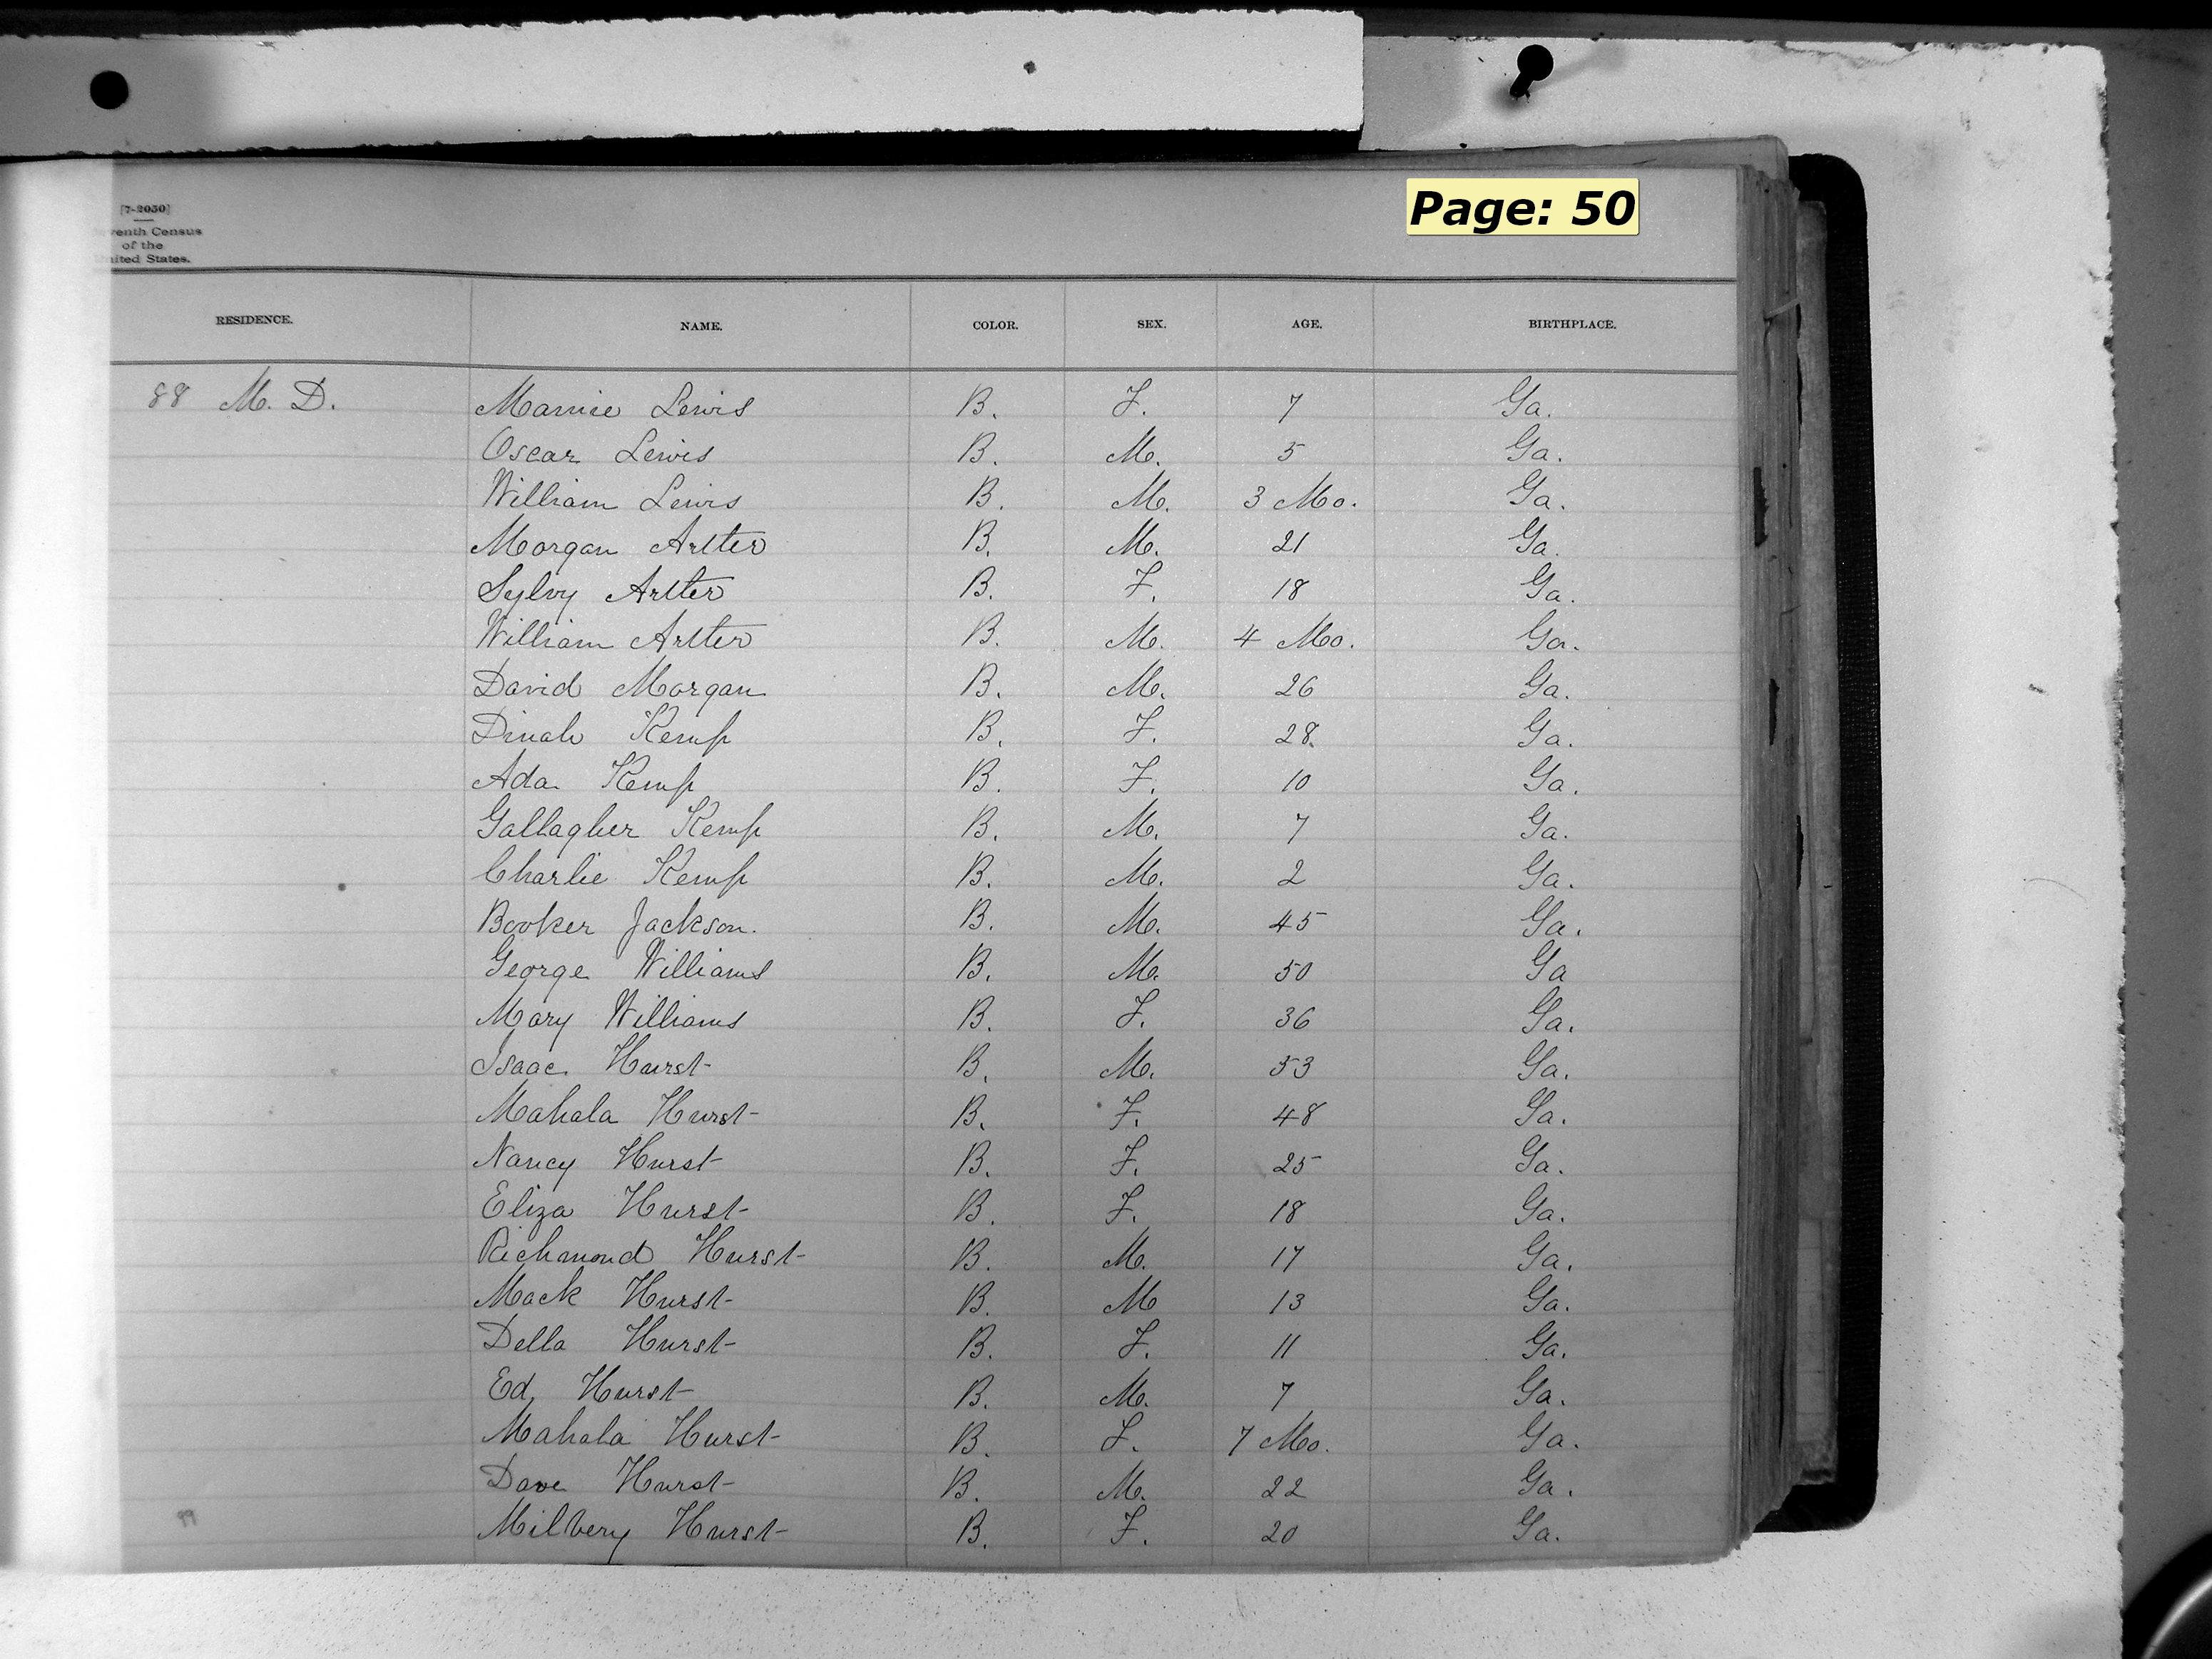 Page: 50
[7-2050]
venth Census
of the
nited States.
RESIDENCE. NAME. COLOR. SEX. AGE. BIRTHPLACE.
88 M. D. Mamie Lewis B. F. 7 Ga.
Oscar Lewis B. M. 5 Ga.
William Lewis B. M. 3 Mo. Ga.
Morgan Artter B. M. 21 Ga.
Sylvy Artter B. F. 18 Ga.
William Artter B. M. 4 Mo. Ga.
David Morgan B. M. 26 Ga.
Dinah Kemp B. F. 28. Ga.
Ada Kemp B. F. 10 Ga.
Gallagher Kemp B. M. 7 Ga.
Charlie Kemp B. M. 2 Ga.
Booker Jackson. B. M. 45 Ga.
George Williams B. M. 50 Ga
Mary Williams B. F. 36 Ga.
Isaac Hurst B. M. 53 Ga.
Mahala Hurst B. F. 48 Ga.
Nancy Hurst B. F. 25 Ga.
Eliza Hurst B. F. 18 Ga.
Richmond Hurst B. M. 17 Ga.
Mack Hurst B. M 13 Ga.
Della Hurst B. F. 11 Ga.
Ed, Hurst B. M. 7 Ga.
Mahala Hurst B. F. 7 Mo. Ga.
Dave Hurst B. M. 22 Ga.
99 Milbery Hurst B. F. 20 Ga.